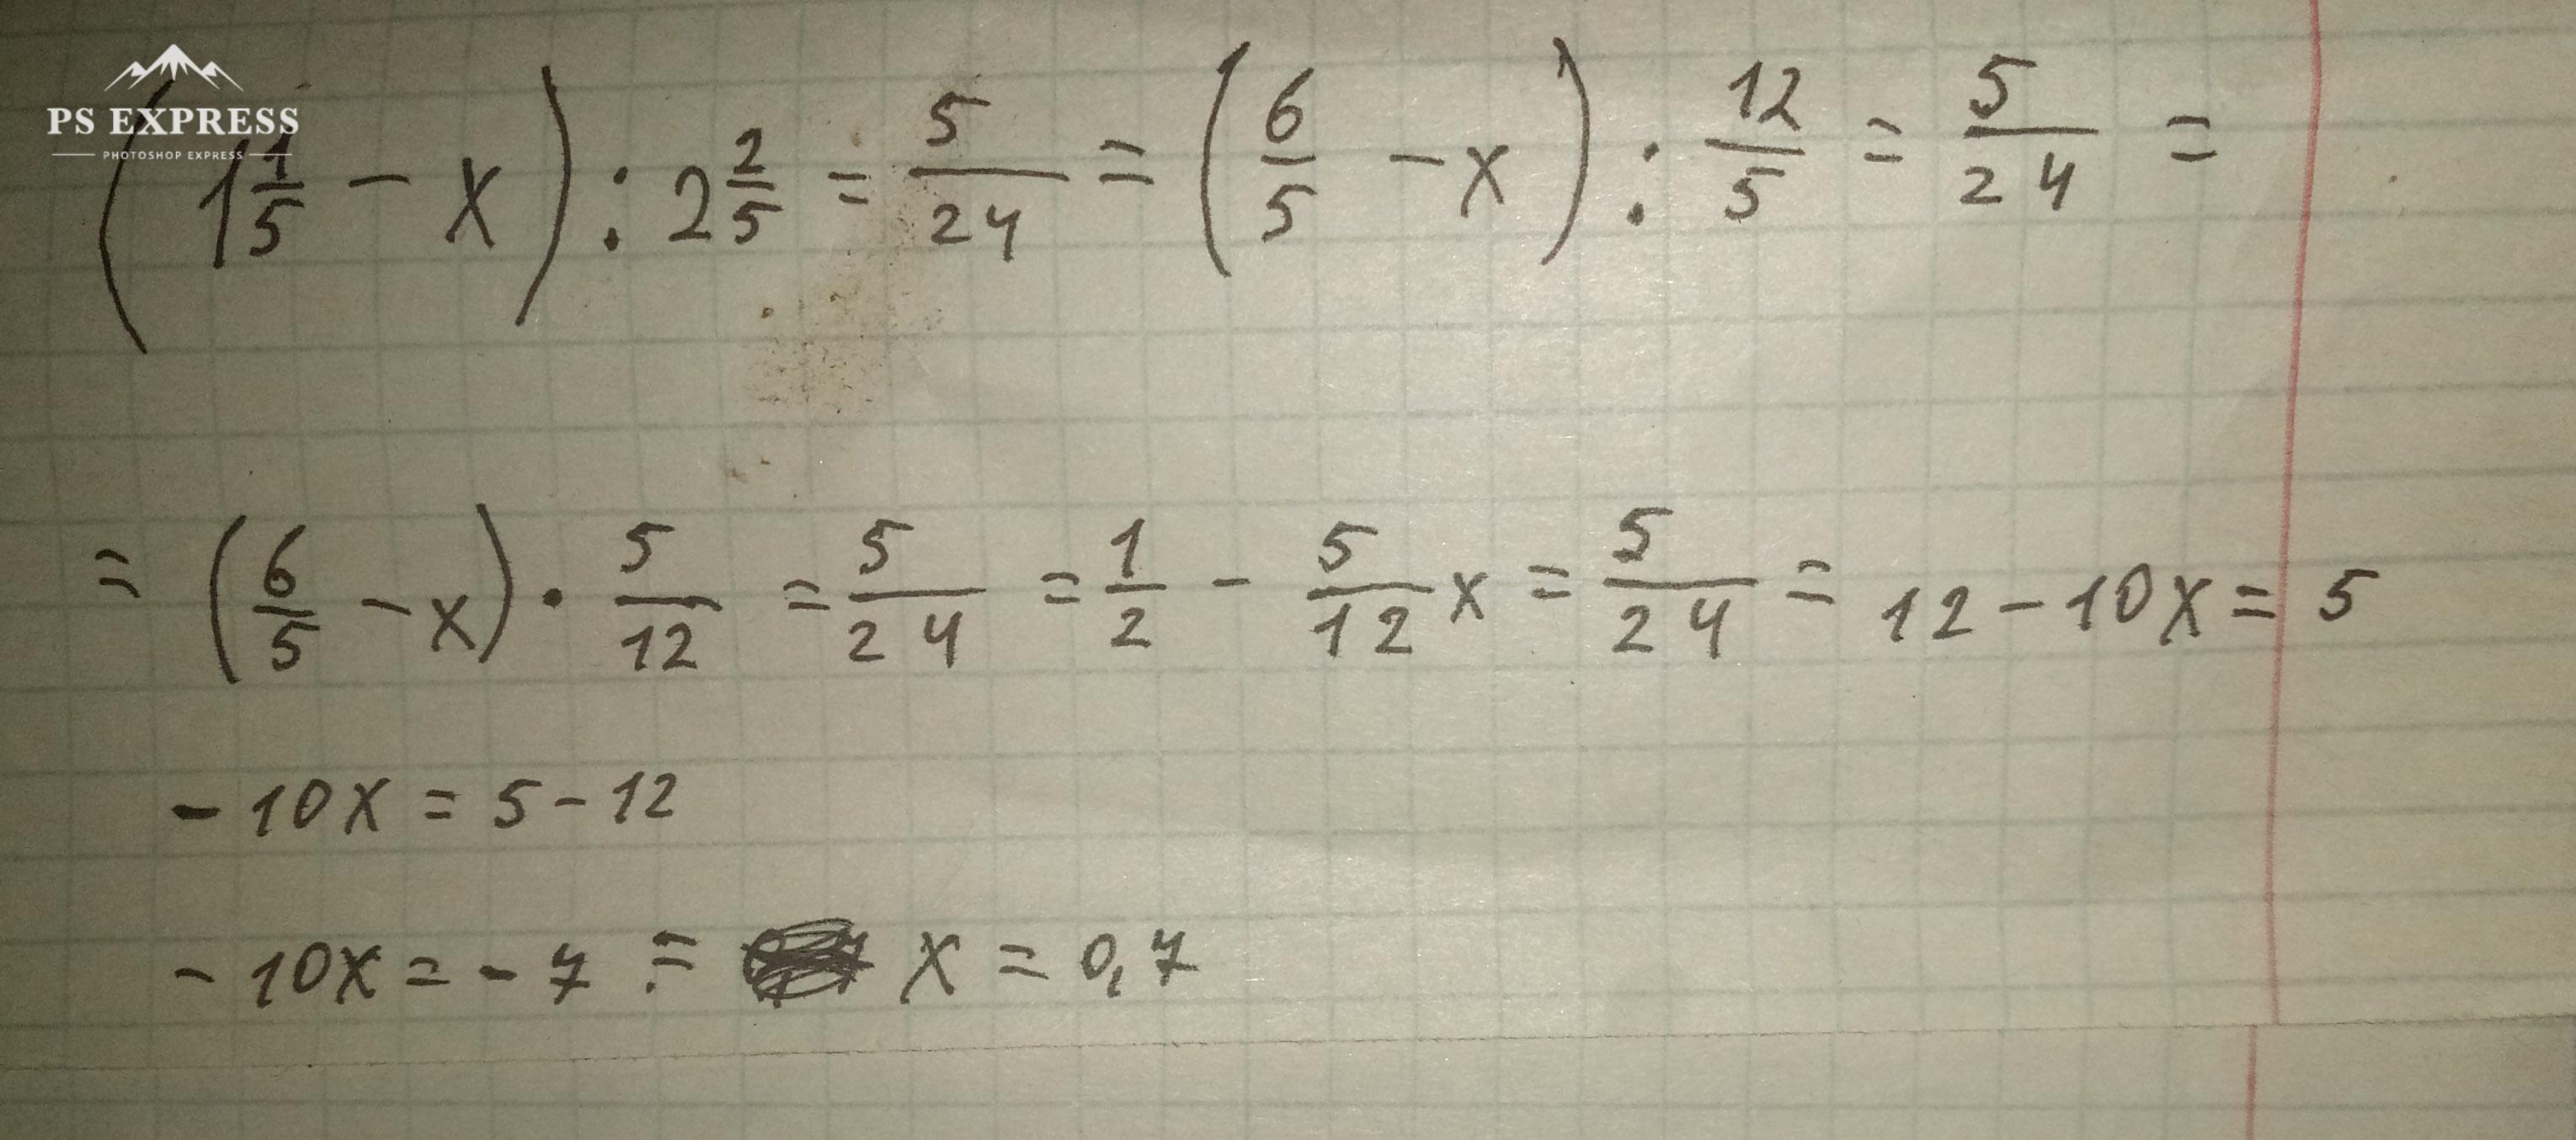 PS EXPRESS
PHOTOSHOP EXPRESS
(1 1/5 - x) : 2 2/5 = 5/24 = (6/5 - x) : 12/5 = 5/24 =
= (6/5 - x) · 5/12 = 5/24 = 1/2 - 5/12 x = 5/24 = 12 - 10x = 5
- 10x = 5 - 12
- 10x = - 7 = x = 0,7